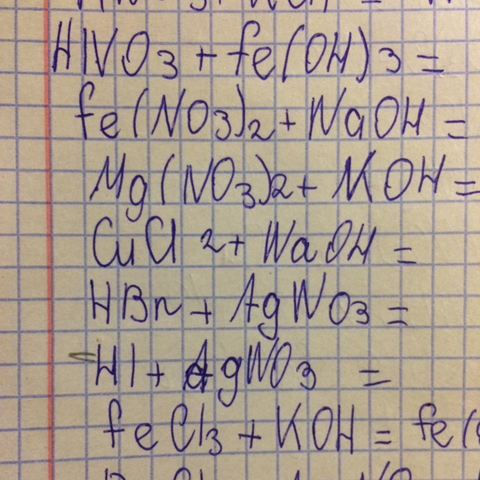 HNO3 + Fe(OH)3 =
Fe(NO3)2 + NaOH =
Mg(NO3)2 + KOH =
CuCl2 + NaOH =
HBr + AgNO3 =
HI + AgNO3 =
FeCl3 + KOH = Fe(